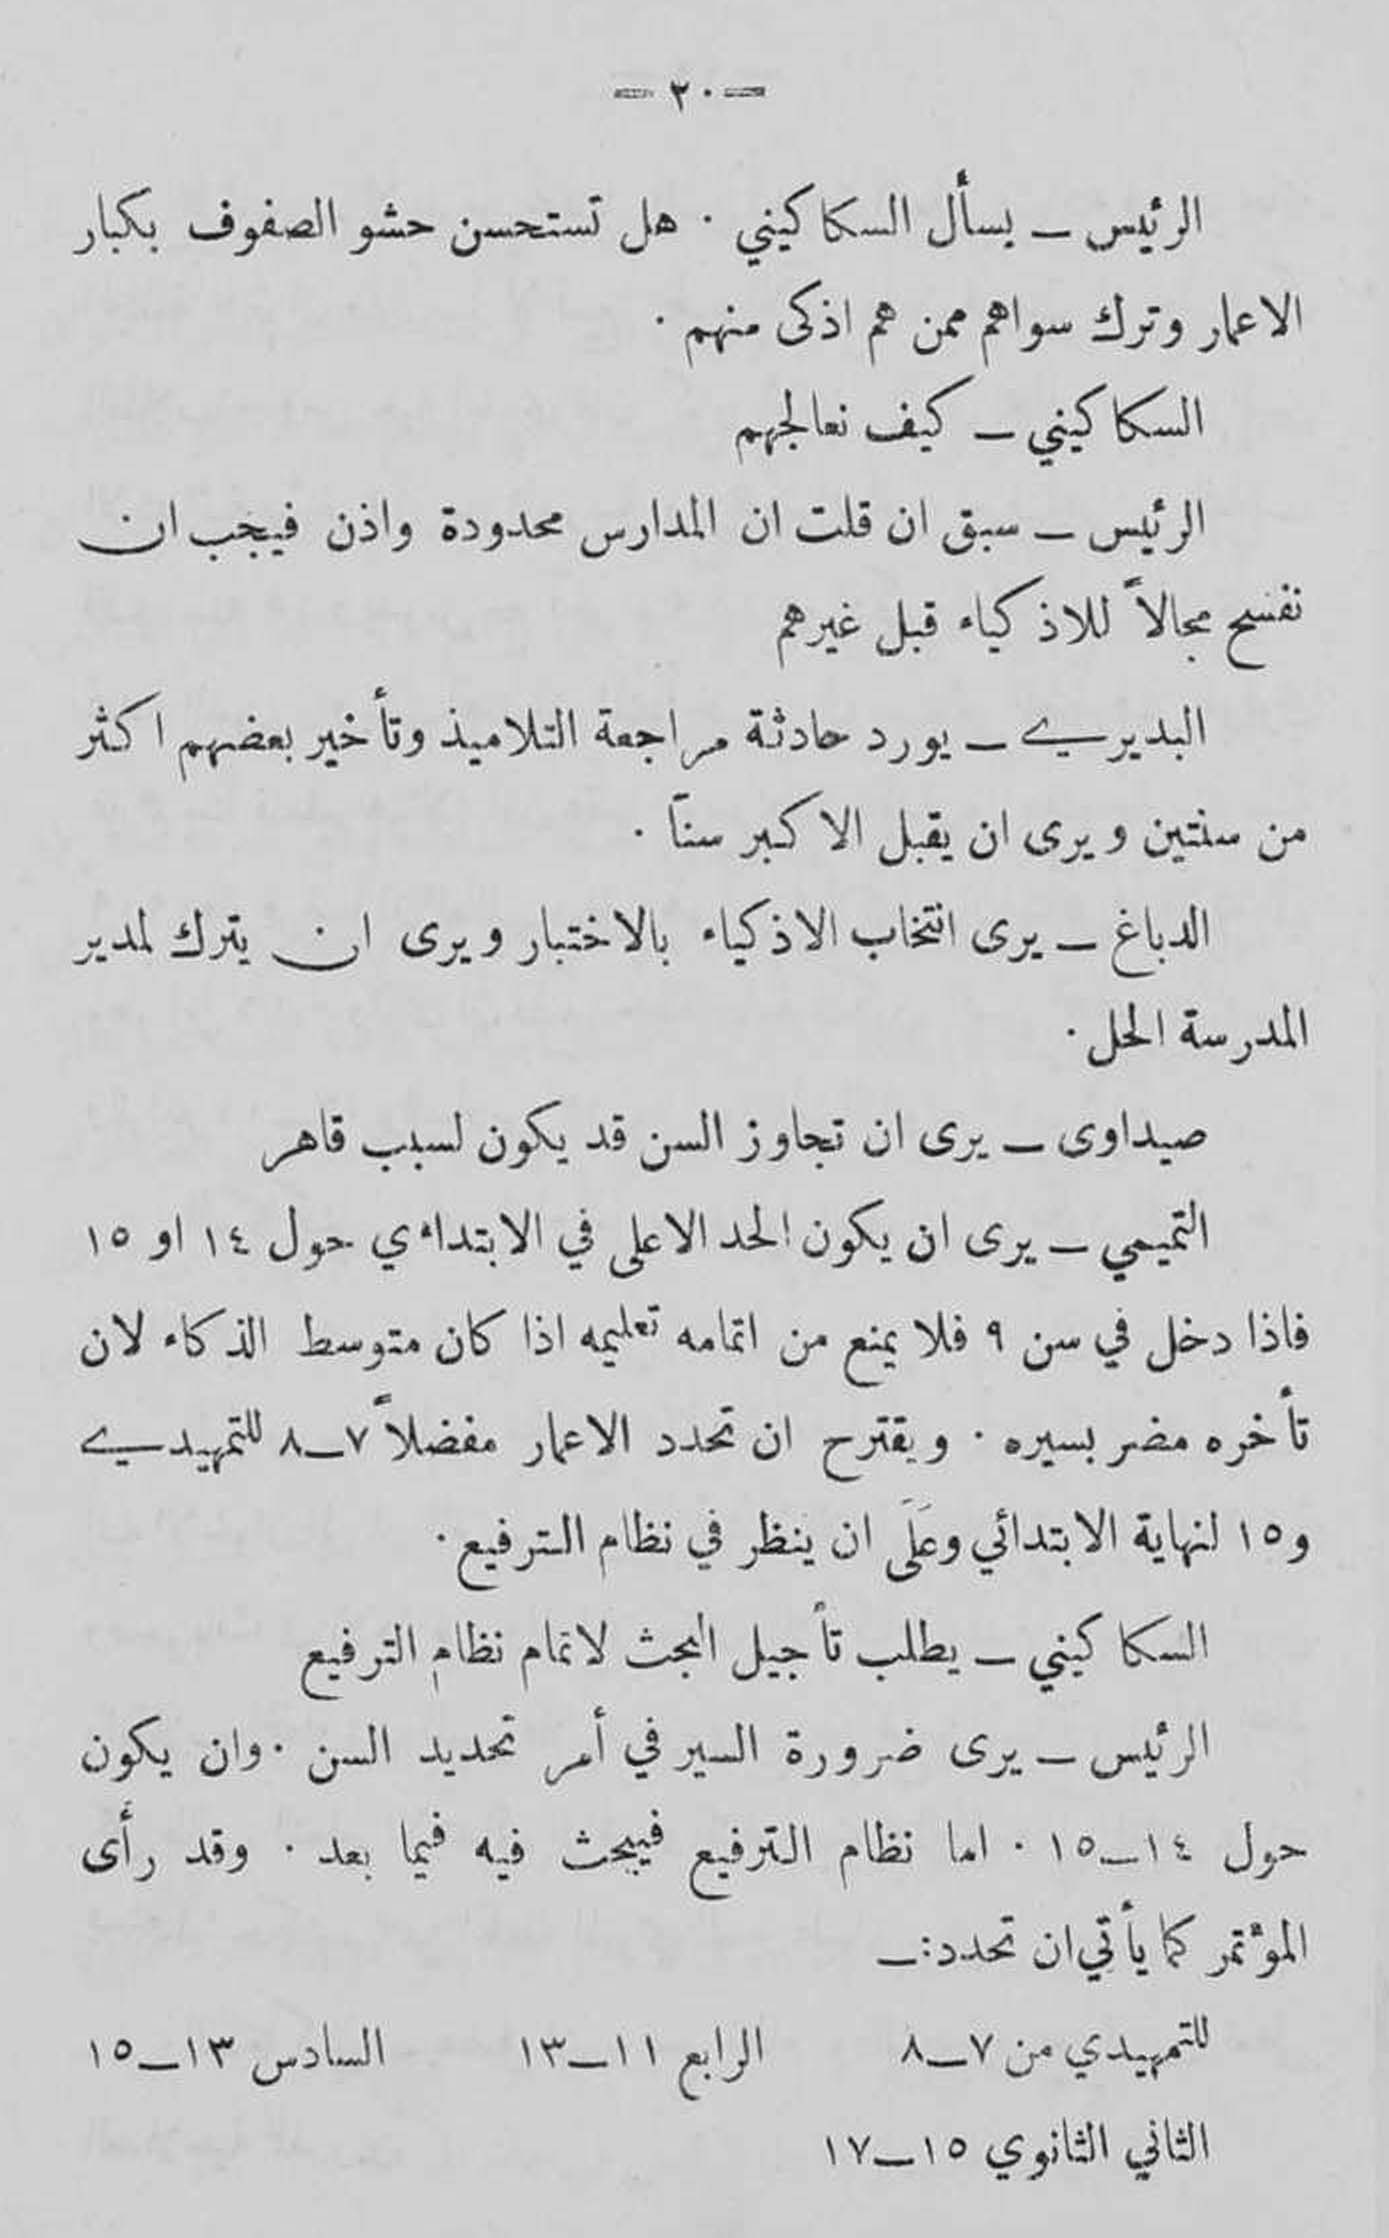 — ٣٠ —
الرئيس — يسأل السكاكيني . هل تستحسن حشو الصفوف بكبار
الاعمار وترك سواهم ممن هم اذكى منهم .
السكاكيني — كيف نعالجهم
الرئيس — سبق ان قلت ان المدارس محدودة واذن فيجب ان
نفسح مجالاً للاذكياء قبل غيرهم
البديري — يورد حادثة مراجعة التلاميذ وتأخير بعضهم اكثر
من سنتين ويرى ان يقبل الاكبر سناً .
الدباغ — يرى انتخاب الاذكياء بالاختبار ويرى ان يترك لمدير
المدرسة الحل .
صيداوى — يرى ان تجاوز السن قد يكون لسبب قاهر
التميمي — يرى ان يكون الحد الاعلى في الابتداءي حول ١٤ او ١٥
فاذا دخل في سن ٩ فلا يمنع من اتمامه تعليمه اذا كان متوسط الذكاء لان
تأخره مضر بسيره . ويقترح ان تحدد الاعمار مفضلاً ٧—٨ للتمهيدي
و١٥ لنهاية الابتدائي وعَلَى ان ينظر في نظام الترفيع .
السكاكيني — يطلب تأجيل البحث لاتمام نظام الترفيع
الرئيس — يرى ضرورة السير في أمر تحديد السن . وان يكون
حول ١٤—١٥ . اما نظام الترفيع فيبحث فيه فيما بعد . وقد رأى
المؤتمر كما يأتي ان تحدد :—
للتمهيدي من ٧—٨ الرابع ١١—١٣ السادس ١٣—١٥
الثاني الثانوي ١٥—١٧